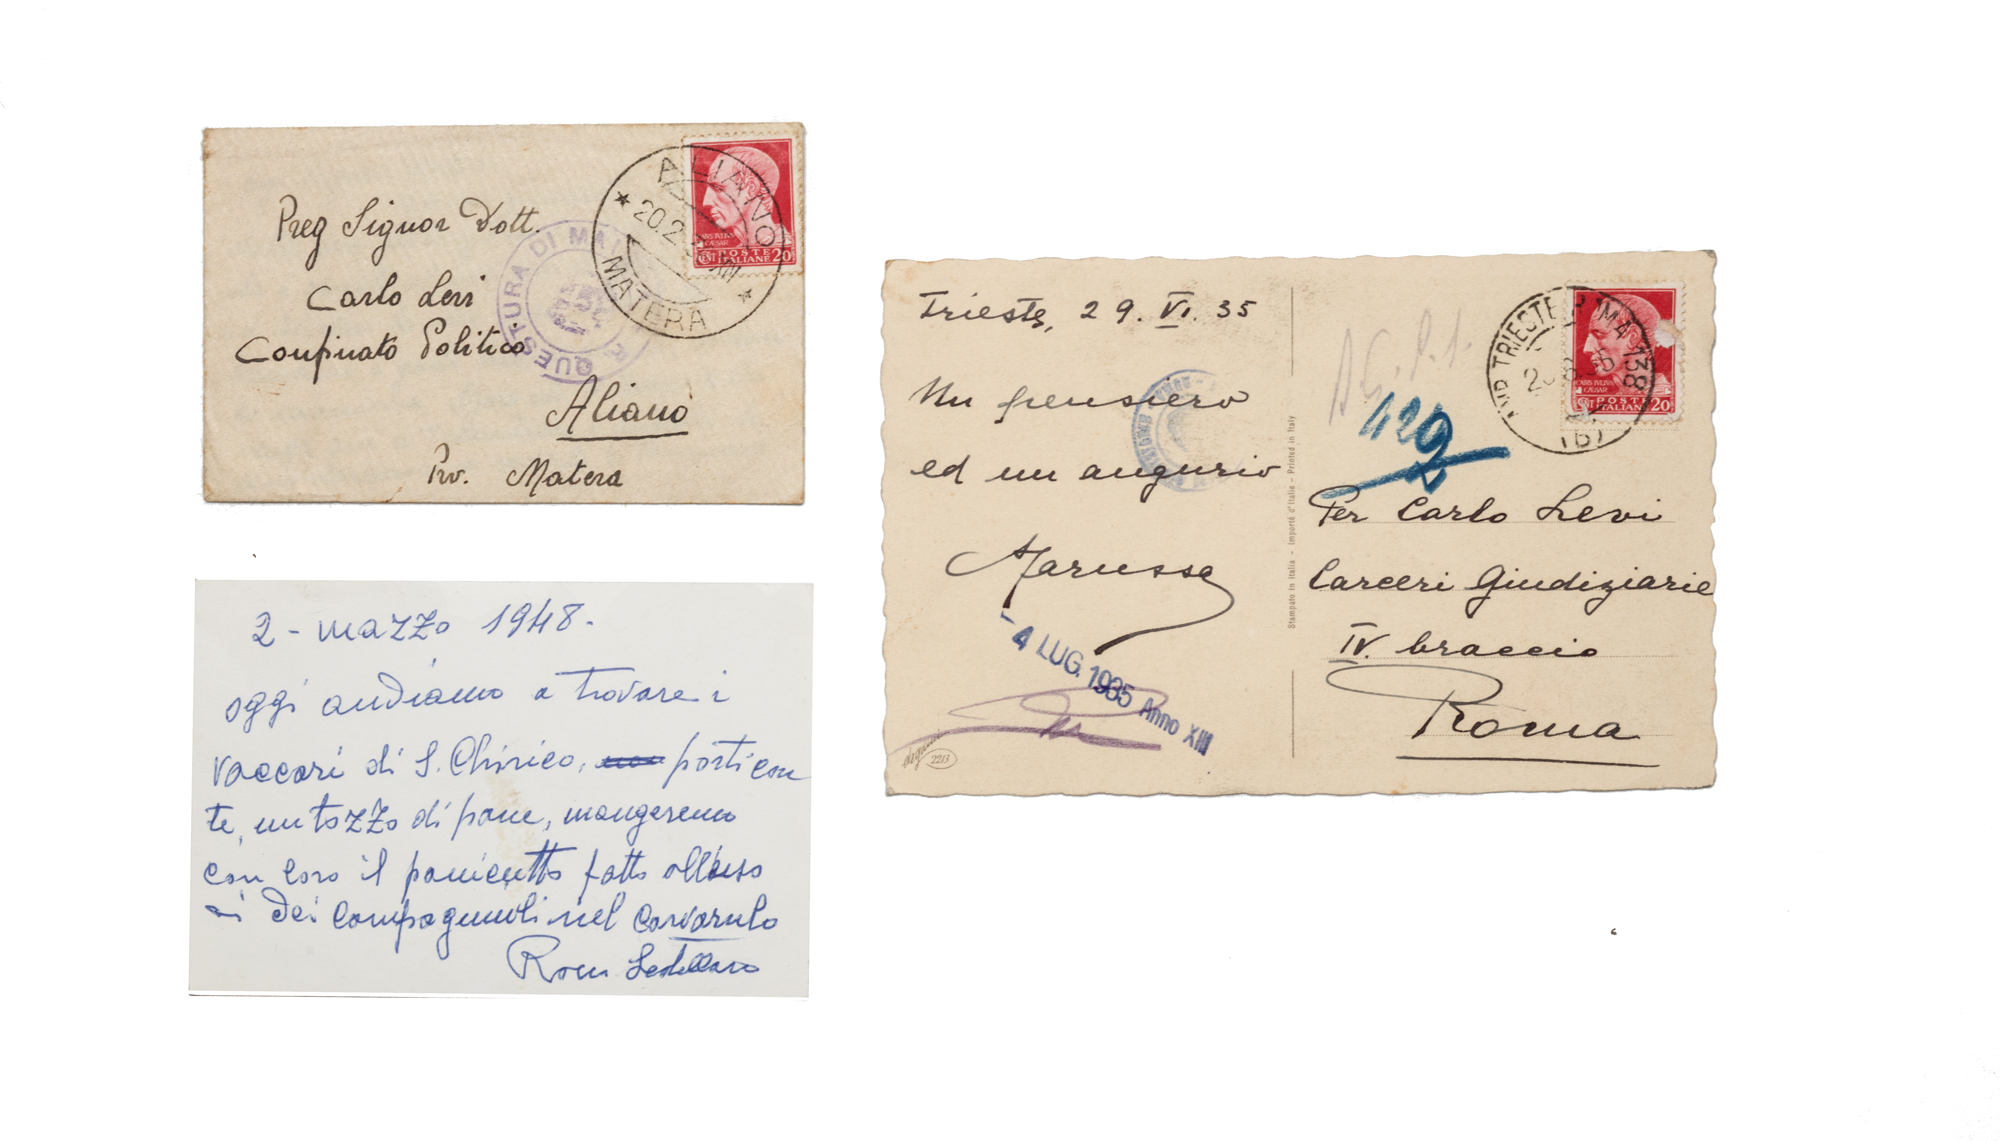 Preg Signor Dott.
Carlo Levi
Confinato Politico
Aliano
Prv. Matera
ALIANO
20.2
MATERA
R. QUESTURA DI MA
CAIUS IULIUS
CAESAR
POSTE
ITALIANE 20
2 - marzo 1948.
oggi andiamo a trovare i
vaccari di S. Chirico, porti con
te, un tozzo di pane, mangeremo
con loro il panicotto fatto all'uso
dei compagnuoli nel carvarulo
Trieste, 29. VI. 35
Un pensiero
ed un augurio
Marussa
- 4 LUG. 1935 Anno XIII
degami
2213
Stampato in Italia - Importé d'Italie - Printed in Italy
A.G.P.1.
429
TRIESTE
138
(B)
CAIUS IULIUS
CAESAR
POSTE
ITALIANE 20
Per Carlo Levi
Carceri Giudiziarie
IV. braccio
Roma